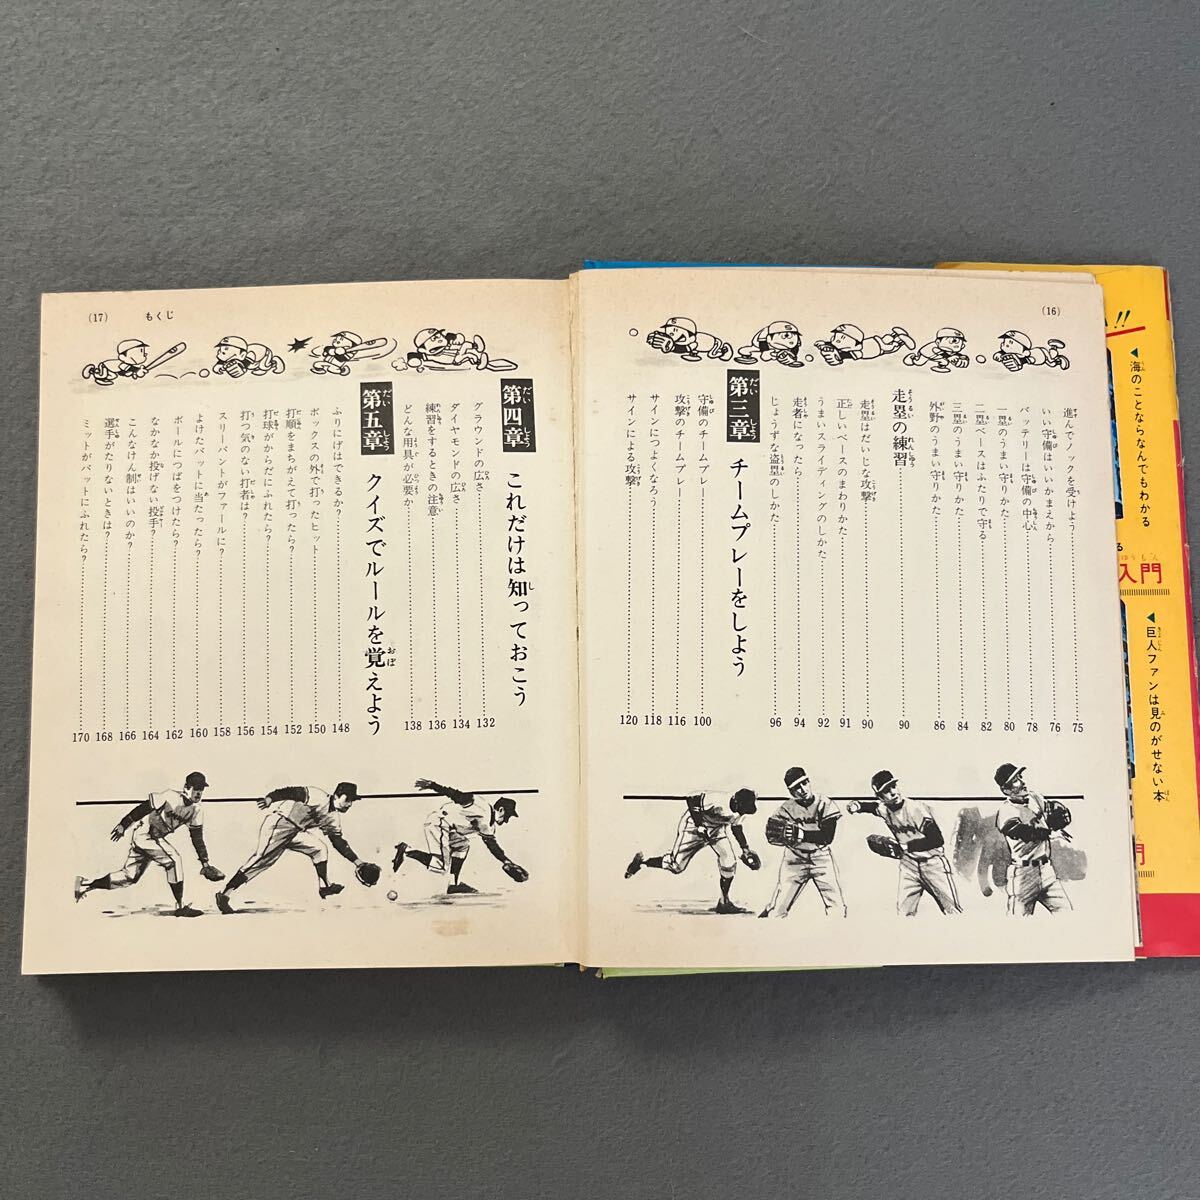 (16)
進んでノックを受けよう 75
いい守備はいいかまえから 76
バッテリーは守備の中心 78
一塁のうまい守りかた 80
二塁ベースはふたりで守る 82
三塁のうまい守りかた 84
外野のうまい守りかた 86
走塁の練習 90
走塁はだいじな攻撃 90
正しいベースのまわりかた 91
うまいスライディングのしかた 92
走者になったら 94
じょうずな盗塁のしかた 96
第三章 チームプレーをしよう
守備のチームプレー 100
攻撃のチームプレー 116
サインにつよくなろう 118
サインによる攻撃 120
(17) もくじ
第四章 これだけは知っておこう
グラウンドの広さ 132
ダイヤモンドの広さ 134
練習をするときの注意 136
どんな用具が必要か 138
第五章 クイズでルールを覚えよう
ふりにげはできるか? 148
ボックスの外で打ったヒット 150
打順をまちがえて打ったら? 152
打球がからだにふれたら? 154
打つ気のない打者は? 156
スリーバントがファールに? 158
よけたバットに当たったら? 160
ボールにつばをつけたら? 162
なかなか投げない投手? 164
こんなけん制はいいのか? 166
選手がたりないときは? 168
ミットがバットにふれたら? 170
!!
◀海のことならなんでもわかる
る
入門
◀巨人ファンは見のがせない本
門